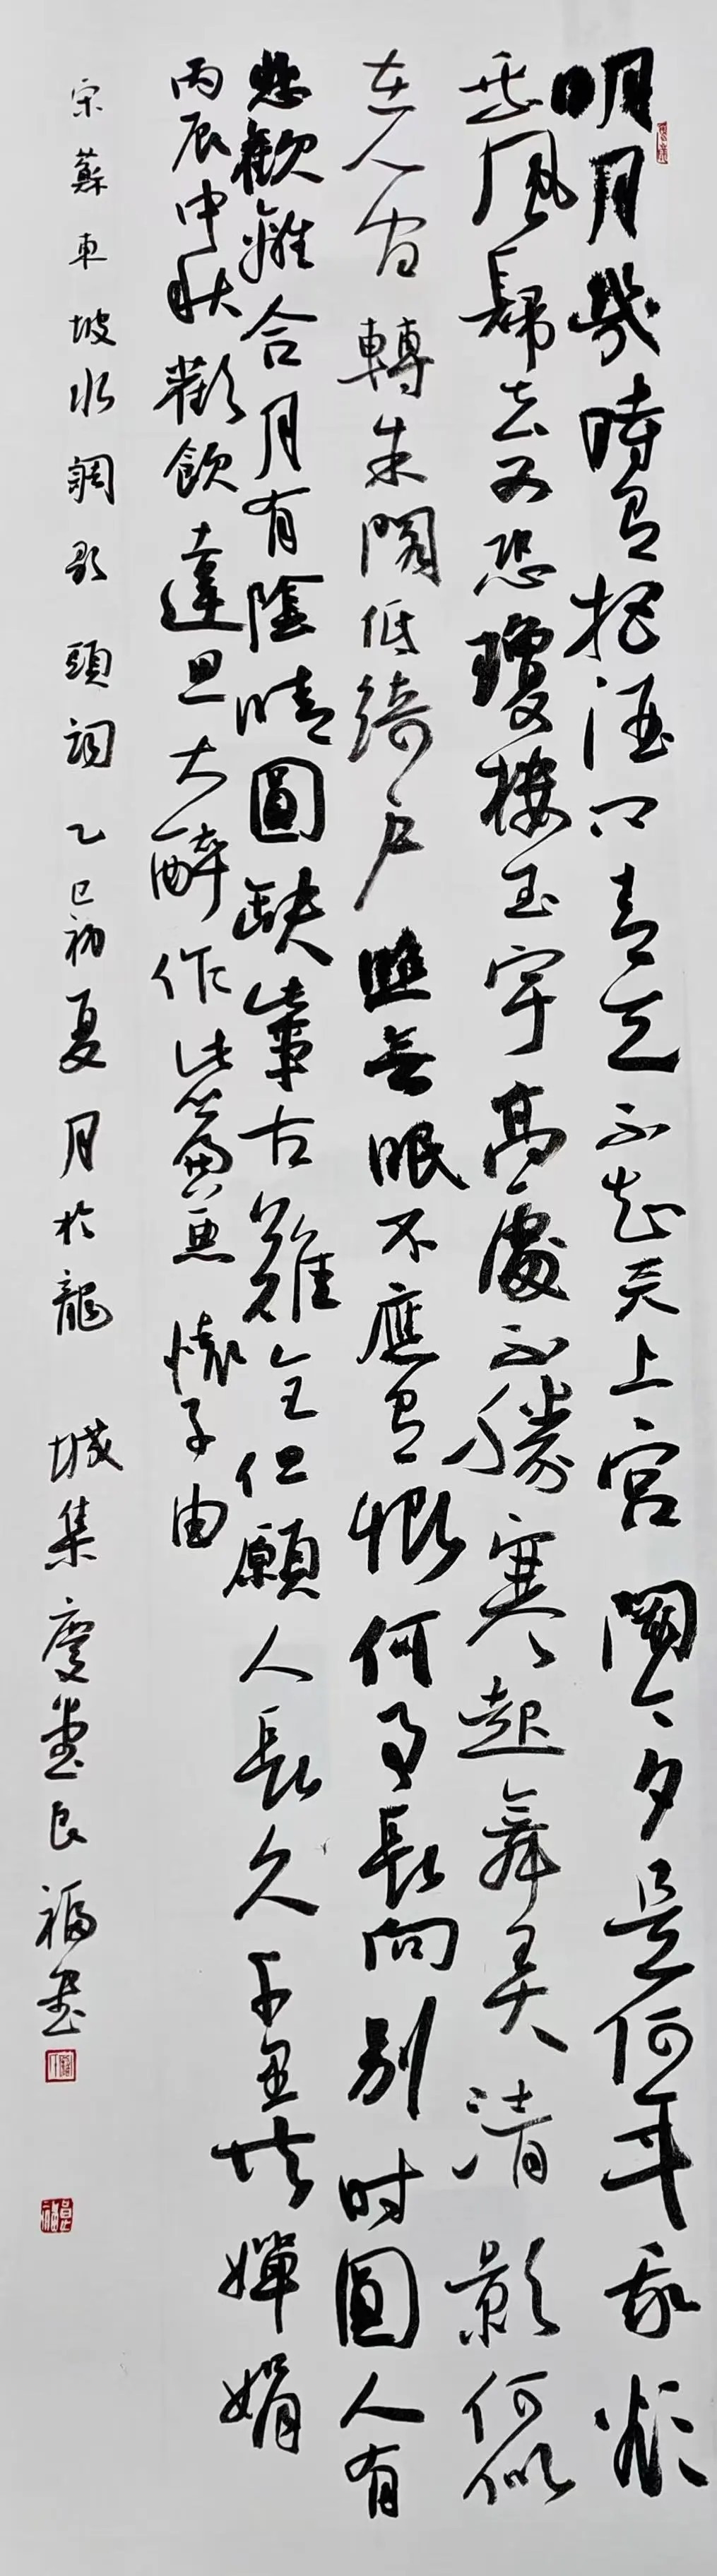 明月幾時有把酒问青天不知天上宮闕今夕是何年我欲
乘風歸去又恐瓊樓玉宇高處不勝寒起舞弄清影何似
在人间轉朱閣低綺户照無眠不應有恨何事長向别时圓人有
悲歡離合月有陰晴圓缺此事古難全但願人長久千里共嬋娟
丙辰中秋歡飲達旦大醉作此篇兼懷子由
宋蘇東坡水調歌頭詞乙巳初夏月於龍城集慶堂良福書